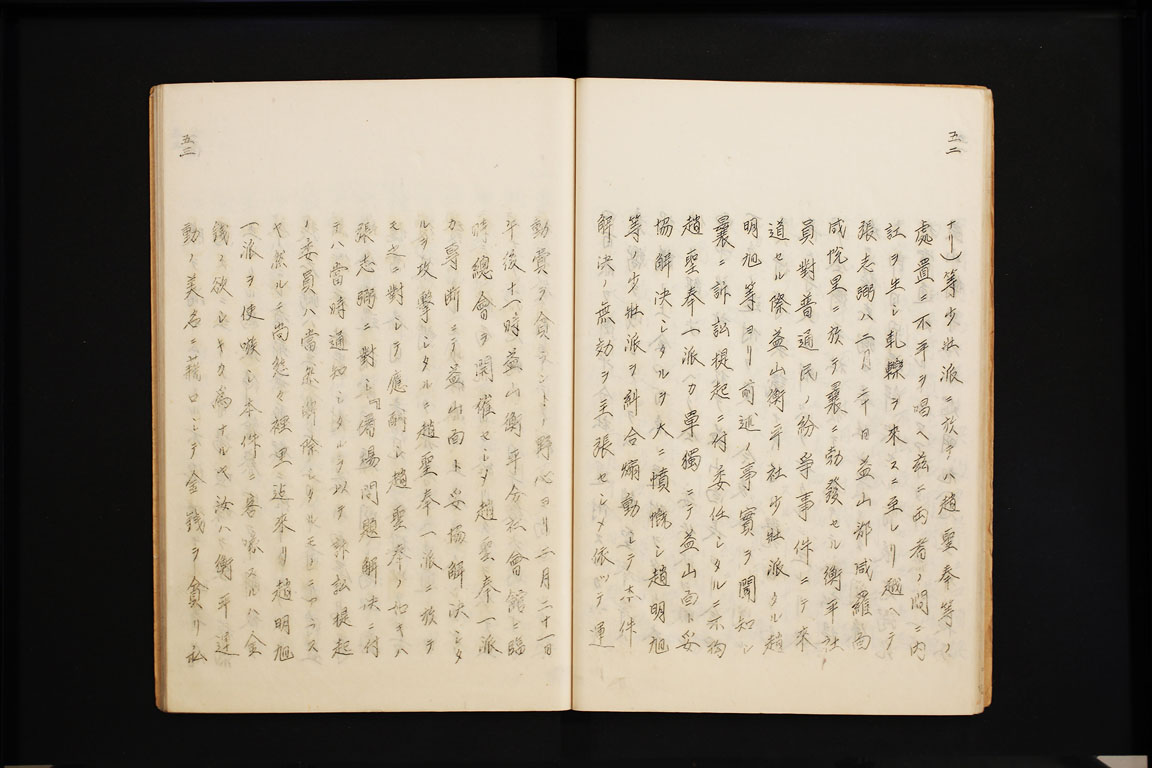 五二
ナリ)等少壯派ニ於テハ趙聖奉等ノ
處置ニ不平ヲ唱ヘ茲ニ両者ノ間ニ內
訌ヲ生シ軋轢ヲ来スニ至レリ越ヘテ
張志弼ハ二月二十日益山郡咸羅面
咸悅里ニ於テ曩ニ勃發セル衡平社
員對普通民ノ紛爭事件ニテ来
道セル際益山衡平社少壯派タル趙
明旭等ヨリ前述ノ事實ヲ聞知シ
曩ニ訴訟提起ニ付委任シタルニ不拘
趙聖奉一派カ單獨ニテ益山面ト妥
協解決シタルヲ大ニ憤慨シ趙明旭
等ノ少壯派ヲ糾合煽動シテ本件
解決ノ無効ヲ主張セシメ依ツテ運
五三
動賞ヲ貪ラントノ野心ヨリ二月二十一日
午後十一時益山衡平分社會館ニ臨
時總會ヲ開催セシメ趙聖奉一派
カ專断ニテ益山面ト妥協解決シタ
ルヲ攻擊シタルニ趙聖奉一派ニ於テ
モ之ニ對シテ應酬シ趙聖奉ノ如キハ
張志弼ニ對シ『屠場問題解決ニ付
テハ當時通知シタルヲ以テ訴訟提起
ノ委員ハ當然解除シタルモノニアラス
ヤ然ルニ尚態々裡里迄来リ趙明旭
一派ヲ使嗾シ本件ニ容喙スルハ金
錢ヲ欲シキカ為ナルヤ汝ハ衡平運
動ノ美名ニ藉口シテ金錢ヲ貪リ私